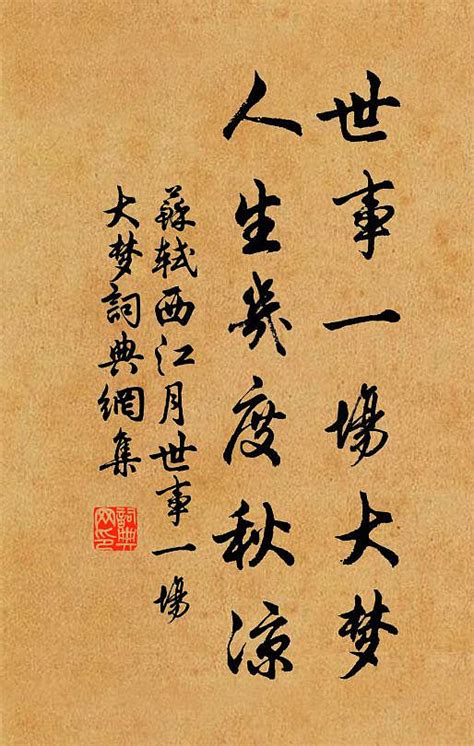 世事一場大梦
人生幾度秋凉
蘇轼西江月世事一場
大梦詞典網集
詞典网印